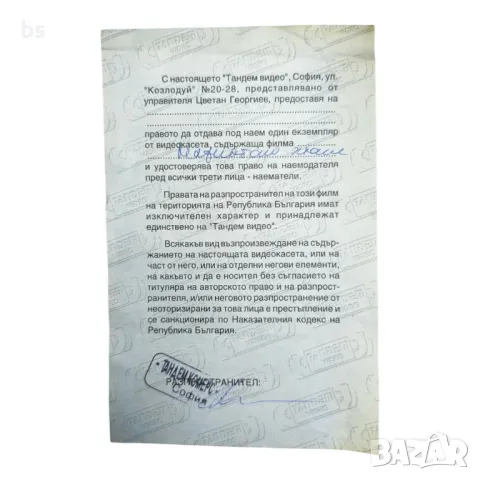 bs
С настоящето "Тандем видео", София, ул.
"Козлодуй" №20-28, представлявано от
управителя Цветан Георгиев, предоставя на
правото да отдава под наем един екземпляр
от видеокасета, съдържаща филма
и удостоверява това право на наемодателя
пред всички трети лица - наематели.
Правата на разпространител на този филм
на територията на Република България имат
изключителен характер и принадлежат
единствено на "Тандем видео".
Всякакъв вид възпроизвеждане на съдър-
жанието на настоящата видеокасета, или на
част от него, или на отделни негови елементи,
на какъвто и да е носител без съгласието на
титуляра на авторското право и на разпрост-
ранителя, и/или неговото разпространение от
неоторизирани за това лица е престъпление и
се санкционира по Наказателния кодекс на
Република България.
РАЗПРОСТРАНИТЕЛ:
"ТАНДЕМ КОМЕРС"
София
BAZAR